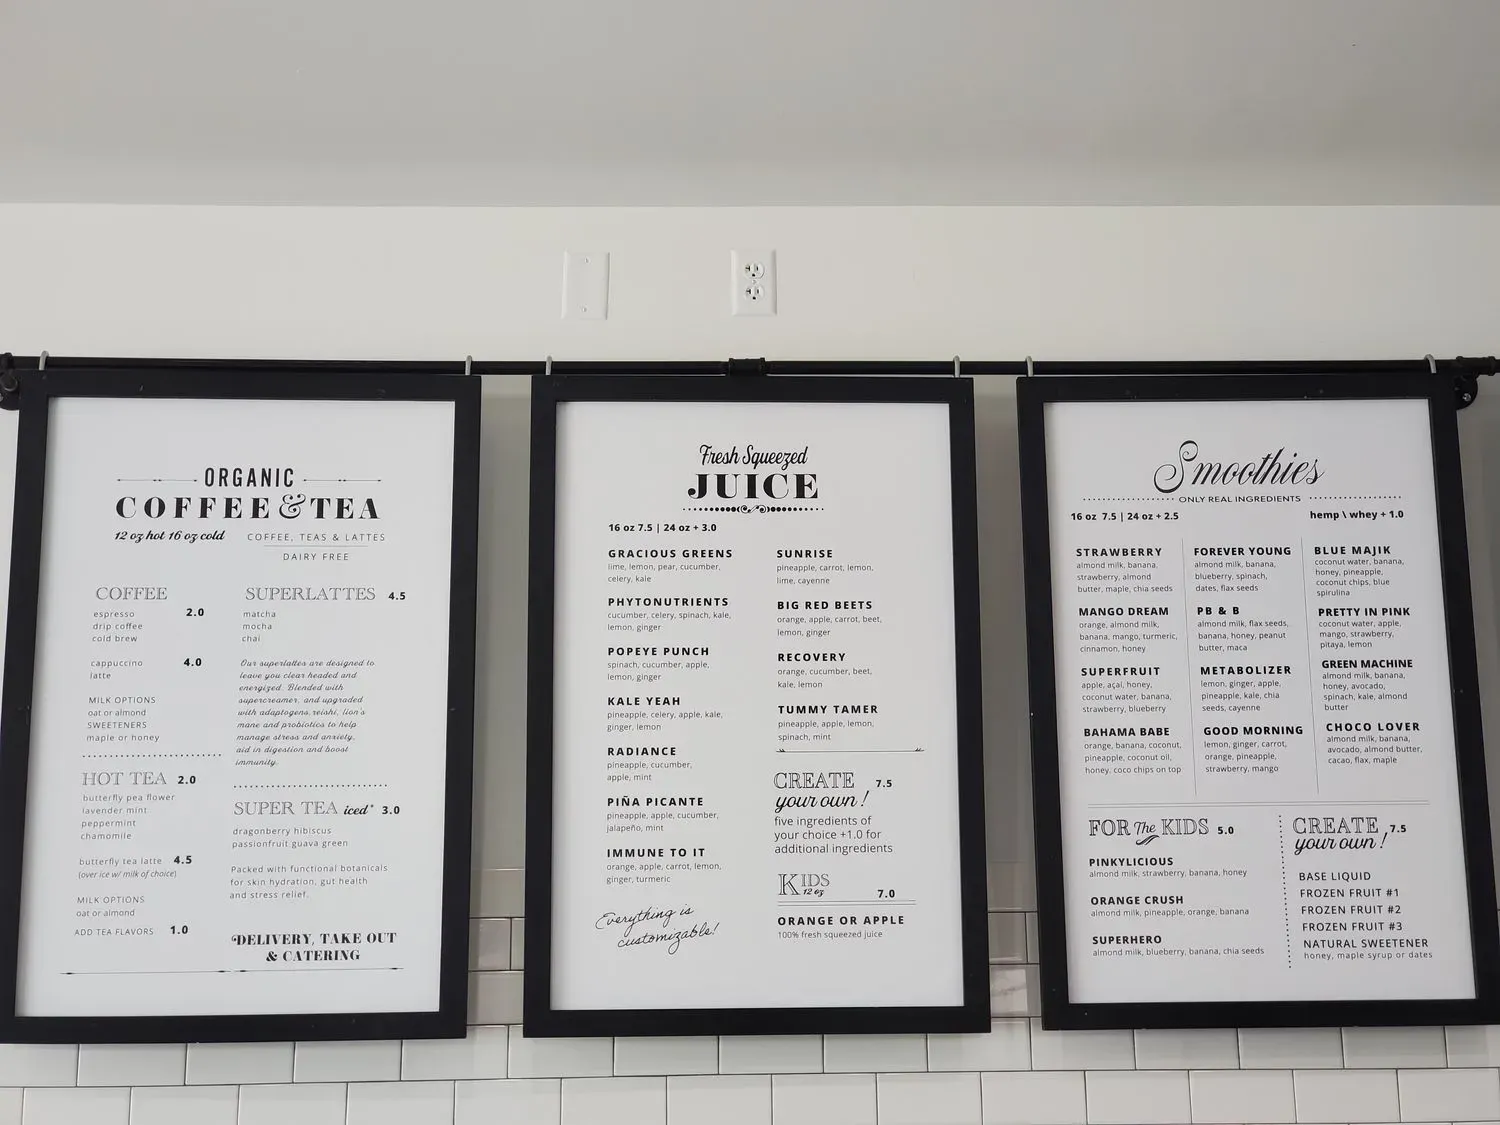 ORGANIC
COFFEE & TEA
12 oz hot 16 oz cold
COFFEE, TEAS & LATTES
DAIRY FREE
COFFEE
espresso 2.0
drip coffee
cold brew
cappuccino 4.0
latte
MILK OPTIONS
oat or almond
SWEETENERS
maple or honey
HOT TEA 2.0
butterfly pea flower
lavender mint
peppermint
chamomile
butterfly tea latte 4.5
(over ice w/ milk of choice)
MILK OPTIONS
oat or almond
ADD TEA FLAVORS 1.0
SUPERLATTES 4.5
matcha
mocha
chai
Our superlattes are designed to
leave you clear headed and
energized. Blended with
supercreamer, and upgraded
with adaptogens, reishi, lion's
mane and probiotics to help
manage stress and anxiety,
aid in digestion and boost
immunity.
SUPER TEA iced* 3.0
dragonberry hibiscus
passionfruit guava green
Packed with functional botanicals
for skin hydration, gut health
and stress relief.
DELIVERY, TAKE OUT
& CATERING
Fresh Squeezed
JUICE
16 oz 7.5 | 24 oz + 3.0
GRACIOUS GREENS
lime, lemon, pear, cucumber,
celery, kale
PHYTONUTRIENTS
cucumber, celery, spinach, kale,
lemon, ginger
POPEYE PUNCH
spinach, cucumber, apple,
lemon, ginger
KALE YEAH
pineapple, celery, apple, kale,
ginger, lemon
RADIANCE
pineapple, cucumber,
apple, mint
PIÑA PICANTE
pineapple, apple, cucumber,
jalapeño, mint
IMMUNE TO IT
orange, apple, carrot, lemon,
ginger, turmeric
Everything is
customizable!
SUNRISE
pineapple, carrot, lemon,
lime, cayenne
BIG RED BEETS
orange, apple, carrot, beet,
lemon, ginger
RECOVERY
orange, cucumber, beet,
kale, lemon
TUMMY TAMER
pineapple, apple, lemon,
spinach, mint
CREATE 7.5
your own!
five ingredients of
your choice +1.0 for
additional ingredients
KIDS
12 oz 7.0
ORANGE OR APPLE
100% fresh squeezed juice
Smoothies
ONLY REAL INGREDIENTS
16 oz 7.5 | 24 oz + 2.5
hemp \ whey + 1.0
STRAWBERRY
almond milk, banana,
strawberry, almond
butter, maple, chia seeds
MANGO DREAM
orange, almond milk,
banana, mango, turmeric,
cinnamon, honey
SUPERFRUIT
apple, açaí, honey,
coconut water, banana,
strawberry, blueberry
BAHAMA BABE
orange, banana, coconut,
pineapple, coconut oil,
honey, coco chips on top
FOREVER YOUNG
almond milk, banana,
blueberry, spinach,
dates, flax seeds
PB & B
almond milk, flax seeds,
banana, honey, peanut
butter, maca
METABOLIZER
lemon, ginger, apple,
pineapple, kale, chia
seeds, cayenne
GOOD MORNING
lemon, ginger, carrot,
orange, pineapple,
strawberry, mango
BLUE MAJIK
coconut water, banana,
honey, pineapple,
coconut chips, blue
spirulina
PRETTY IN PINK
coconut water, apple,
mango, strawberry,
pitaya, lemon
GREEN MACHINE
almond milk, banana,
honey, avocado,
spinach, kale, almond
butter
CHOCO LOVER
almond milk, banana,
avocado, almond butter,
cacao, flax, maple
FOR The KIDS 5.0
PINKYLICIOUS
almond milk, strawberry, banana, honey
ORANGE CRUSH
almond milk, pineapple, orange, banana
SUPERHERO
almond milk, blueberry, banana, chia seeds
CREATE 7.5
your own!
BASE LIQUID
FROZEN FRUIT #1
FROZEN FRUIT #2
FROZEN FRUIT #3
NATURAL SWEETENER
honey, maple syrup or dates